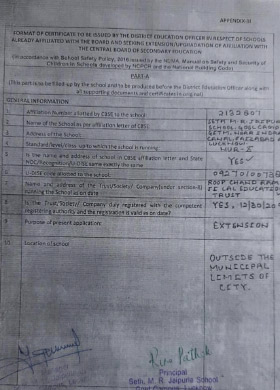 APPENDIX-III
FORMAT OF CERTIFICATE TO BE ISSUED BY THE DISTRICT EDUCATION OFFICER IN RESPECT OF SCHOOLS
ALREADY AFFILIATED WITH THE BOARD AND SEEKING EXTENSION/UPGRADATION OF AFFILIATION WITH
THE CENTRAL BOARD OF SECONDARY EDUCATION
(In accordance with School Safety Policy, 2016 issued by the NDMA, Manual on Safety and Security of
Children in Schools developed by NCPCR and the National Building Code)
PART-A
(This part is to be filled up by the school and to be produced before the District Education Officer along with
all supporting documents and certificates in original)
GENERAL INFORMATION
1. Affiliation Number allotted by CBSE to the school
2. Name of the School as per affiliation letter of CBSE
SETH M.R. JAIPURIA
SCHOOL, GOEL CAMPUS
3. Address of the School
LUCKNOW
4. Standard/level/class upto which the school is running
5. Is the name and address of school in CBSE affiliation letter and State
NOC/Recognition/U-DISE same exactly the same
YES
6. U-DISE code allotted to the school
7. Name and address of the Trust/Society/ Company(under section-8)
running the School as on date
ROOP CHAND RAM
EDUCATIONAL
TRUST
8. Is the Trust/Society/ Company duly registered with the competent
registering authority and the registration is valid as on date?
YES,
9. Purpose of present application:
EXTENSION
10. Location of school
OUTSIDE THE
MUNICIPAL
LIMITS OF
CITY.
Principal
Seth. M. R. Jaipuria School